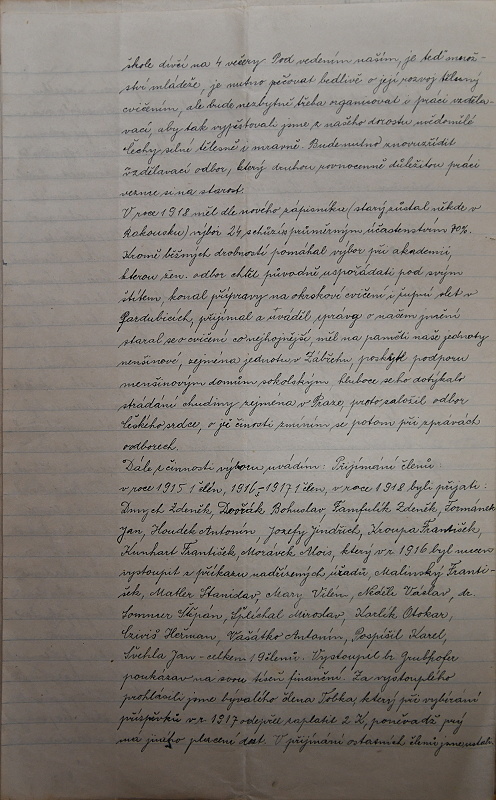 škole dívčí na 4 večery. Pod vedením naším, je teď množ-
ství mládeže, je nutno pečovat bedlivě o její rozvoj tělesný
cvičením, ale bude nezbytně třeba organisovat i práci vzděla-
vací, aby tak vypěstovali jsme z našeho dorostu uvědomělé
Čechy, silné tělesně i mravně. Bude nutno znovuzřídit
vzdělavací odbor, který druhou rovnocenně důležitou práci
vezme si na starost.
V roce 1918 měl dle nového zápisníku (starý zůstal někde v
Rakousku) výbor 24 schůzí s průměrným účastenstvím 70%.
Kromě běžných drobností pomáhal výbor při akademii,
kterou žen. odbor chtěl původně uspořádati pod svým
štítem, konal přípravy na okrskové cvičení i župní slet v
Pardubicích, přijímal a uváděl, zprávy o našem jmění
staral se o cvičení co nejhojnější, měl na paměti naše jednoty
menšinové, zejména jednotu v Zábřehu, poskytl podporu
menšinovým domům sokolským. Hluboce se ho dotýkalo
strádání chudiny zejmena v Praze, proto založil odbor
Českého srdce, o jež činosti zmíním se potom při zprávách
o odborech.
Dále z činnosti výboru uvádím: Přijímání členů:
v roce 1915 1 člen, 1916 - 1917 1 člen, v roce 1918 byli přijati:
Dmych Zdeněk, Dvořák Bohuslav, Famfulík Zdeněk, Formánek
Jan, Houdek Antonín, Jozefy Jindřich, Kroupa František,
Kunhart František, Morávek Alois, který v r. 1916 byl nucen
vystoupit z příkazu nadřízených úřadů, Malinský Franti-
šek, Matler Stanislav, Mary Vilém, Neděla Václav, dr.
Sommer Štěpán, Šplíchal Miroslav, Karlík Otokar,
Heřman, Vašátko Antonín, Pospíšil Karel,
Švehla Jan - celkem 19 členů. Vystoupil br. Grubhofer
poukázav na svou tíseň finanční. Za vystouplého
prohlásili jsme bývalého člena Tobka, který při vybírání
příspěvků v r. 1917 odepřel zaplatit 2 K, poněvadž prý
má jiného placení dost. V přijímání ostatních členů jsme